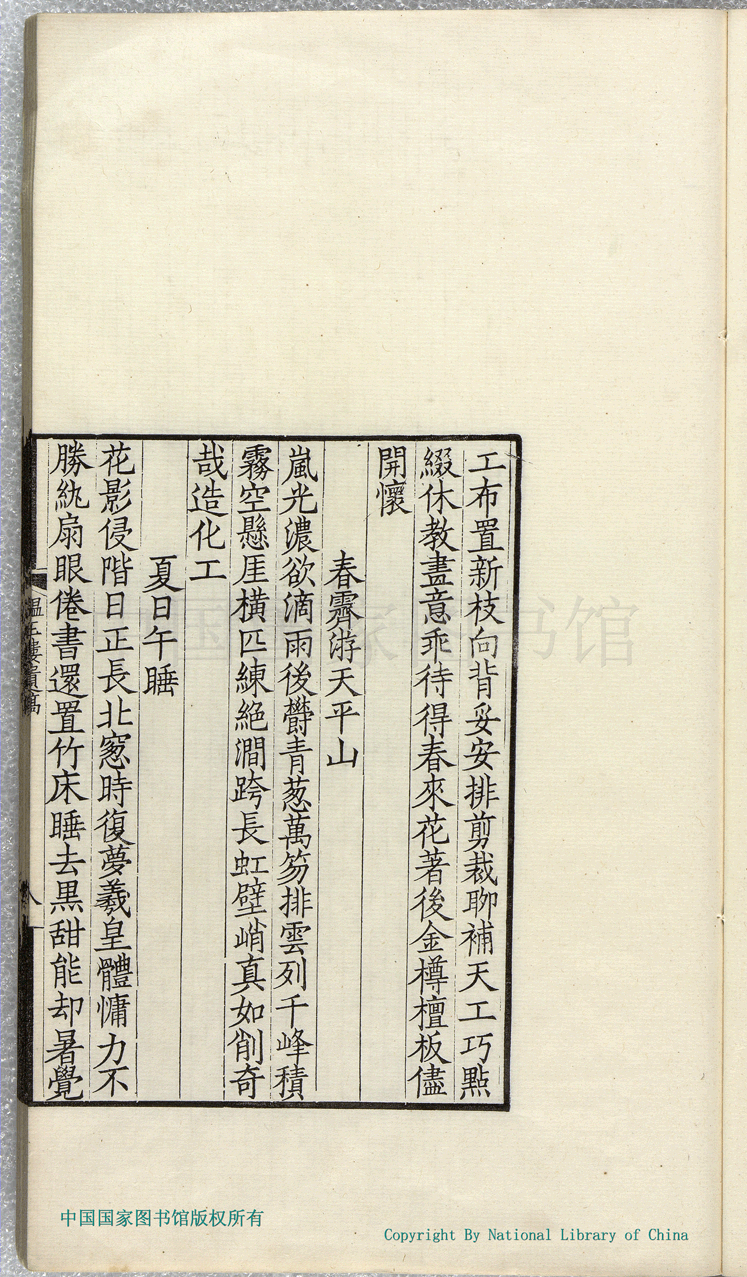 工布置新枝向背妥安排剪裁聊補天工巧點
綴休教盡意乖待得春來花著後金樽檀板儘
開懷
春霽游天平山
嵐光濃欲滴雨後欝青葱萬笏排雲列千峰積
霧空懸厓橫匹練絕澗跨長虹壁峭真如削奇
哉造化工
夏日午睡
花影侵階日正長北窻時復夢羲皇體慵力不
勝紈扇眼倦書還置竹床睡去黒甜能却暑覺
韞玉樓遺稿
八
中国国家图书馆
中国国家图书馆版权所有
Copyright By National Library of China